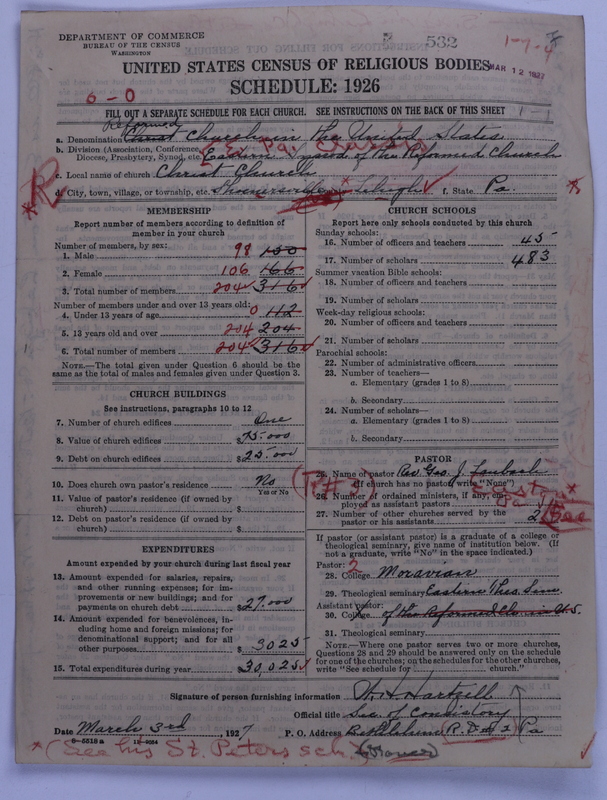 DEPARTMENT OF COMMERCE
BUREAU OF THE CENSUS
WASHINGTON
532
1-7-4
UNITED STATES CENSUS OF RELIGIOUS BODIES
MAR 12 1927
SCHEDULE: 1926
6-0
FILL OUT A SEPARATE SCHEDULE FOR EACH CHURCH. SEE INSTRUCTIONS ON THE BACK OF THIS SHEET
Reformed
a. Denomination Christ Church in the United States
b. Division (Association, Conference, Diocese, Presbytery, Synod, etc. Eastern Synod of the Reformed Church
E. Pa.
c. Local name of church Christ Church
R
d. City, town, village, or township, etc. Shoenersville * Lehigh f. State. Pa. *
MEMBERSHIP
Report number of members according to definition of member in your church
Number of members, by sex:
1. Male 98 150
2. Female 106 166
3. Total number of members 204 316
Number of members under and over 13 years old:
4. Under 13 years of age 0 112
5. 13 years old and over 204 204
6. Total number of members 204 316
NOTE.—The total given under Question 6 should be same as the total of males and females given under Question 3.
CHURCH BUILDINGS
See instructions, paragraphs 10 to 12
7. Number of church edifices One
8. Value of church edifices $75.000
9. Debt on church edifices $25.000
10. Does church own pastor's residence No
Yes or No
11. Value of pastor's residence (if owned by church) $
12. Debt on pastor's residence (if owned by church) $
EXPENDITURES
Amount expended by your church during last fiscal year
13. Amount expended for salaries, repairs, and other running expenses; for improvements or new buildings; and for payments on church debt $27.000
14. Amount expended for benevolences, including home and foreign missions; for denominational support; and for all other purposes $3025
15. Total expenditures during year $30,025
CHURCH SCHOOLS
Report here only schools conducted by this church
Sunday schools:
16. Number of officers and teachers 45
17. Number of scholars 483
Summer vacation Bible schools:
18. Number of officers and teachers
19. Number of scholars
Week-day religious schools:
20. Number of officers and teachers
21. Number of scholars
Parochial schools:
22. Number of administrative officers
23. Number of teachers—
a. Elementary (grades 1 to 8)
b. Secondary
24. Number of scholars—
a. Elementary (grades 1 to 8)
b. Secondary
PASTOR
25. Name of pastor Rev. Geo. J. Laubach
(If church has no pastor, write "None")
26. Number of ordained ministers, if any, employed as assistant pastors
27. Number of other churches served by the pastor or his assistants 2
If pastor (or assistant pastor) is a graduate of a college or theological seminary, give name of institution below. (If not a graduate, write "No" in the space indicated.)
Pastor: 2
28. College Moravian
29. Theological seminary Eastern Theo. Sem.
Assistant pastor:
30. College of the Reformed Ch. in U.S.
31. Theological seminary
NOTE.—Where one pastor serves two or more churches, Questions 28 and 29 should be answered only on the schedule for one of the churches; on the schedules for the other churches, write "See schedule for church."
Signature of person furnishing information W. H. Hartzell
Official title Sec. of Consistory
Date March 3rd, 1927 P. O. Address Bethlehem R.D. #2 Pa
8-5518a
* (See his St. Peters sch.